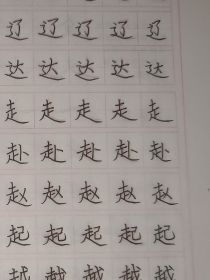 辽辽辽辽辽
达达达达达
走走走走走
赴赴赴赴赴
赵赵赵赵赵
起起起起起
越越越越越